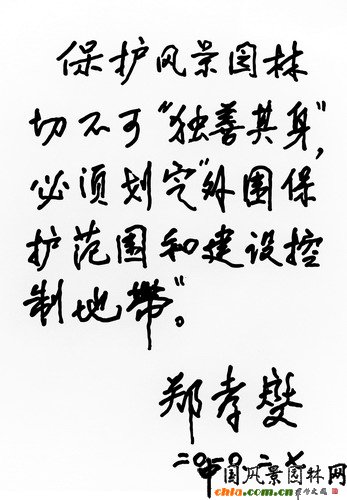 保护风景园林
切不可“独善其身”,
必须划定“外围保
护范围和建设控
制地带”。
郑孝燮
中国风景园林网
chla.com.cn